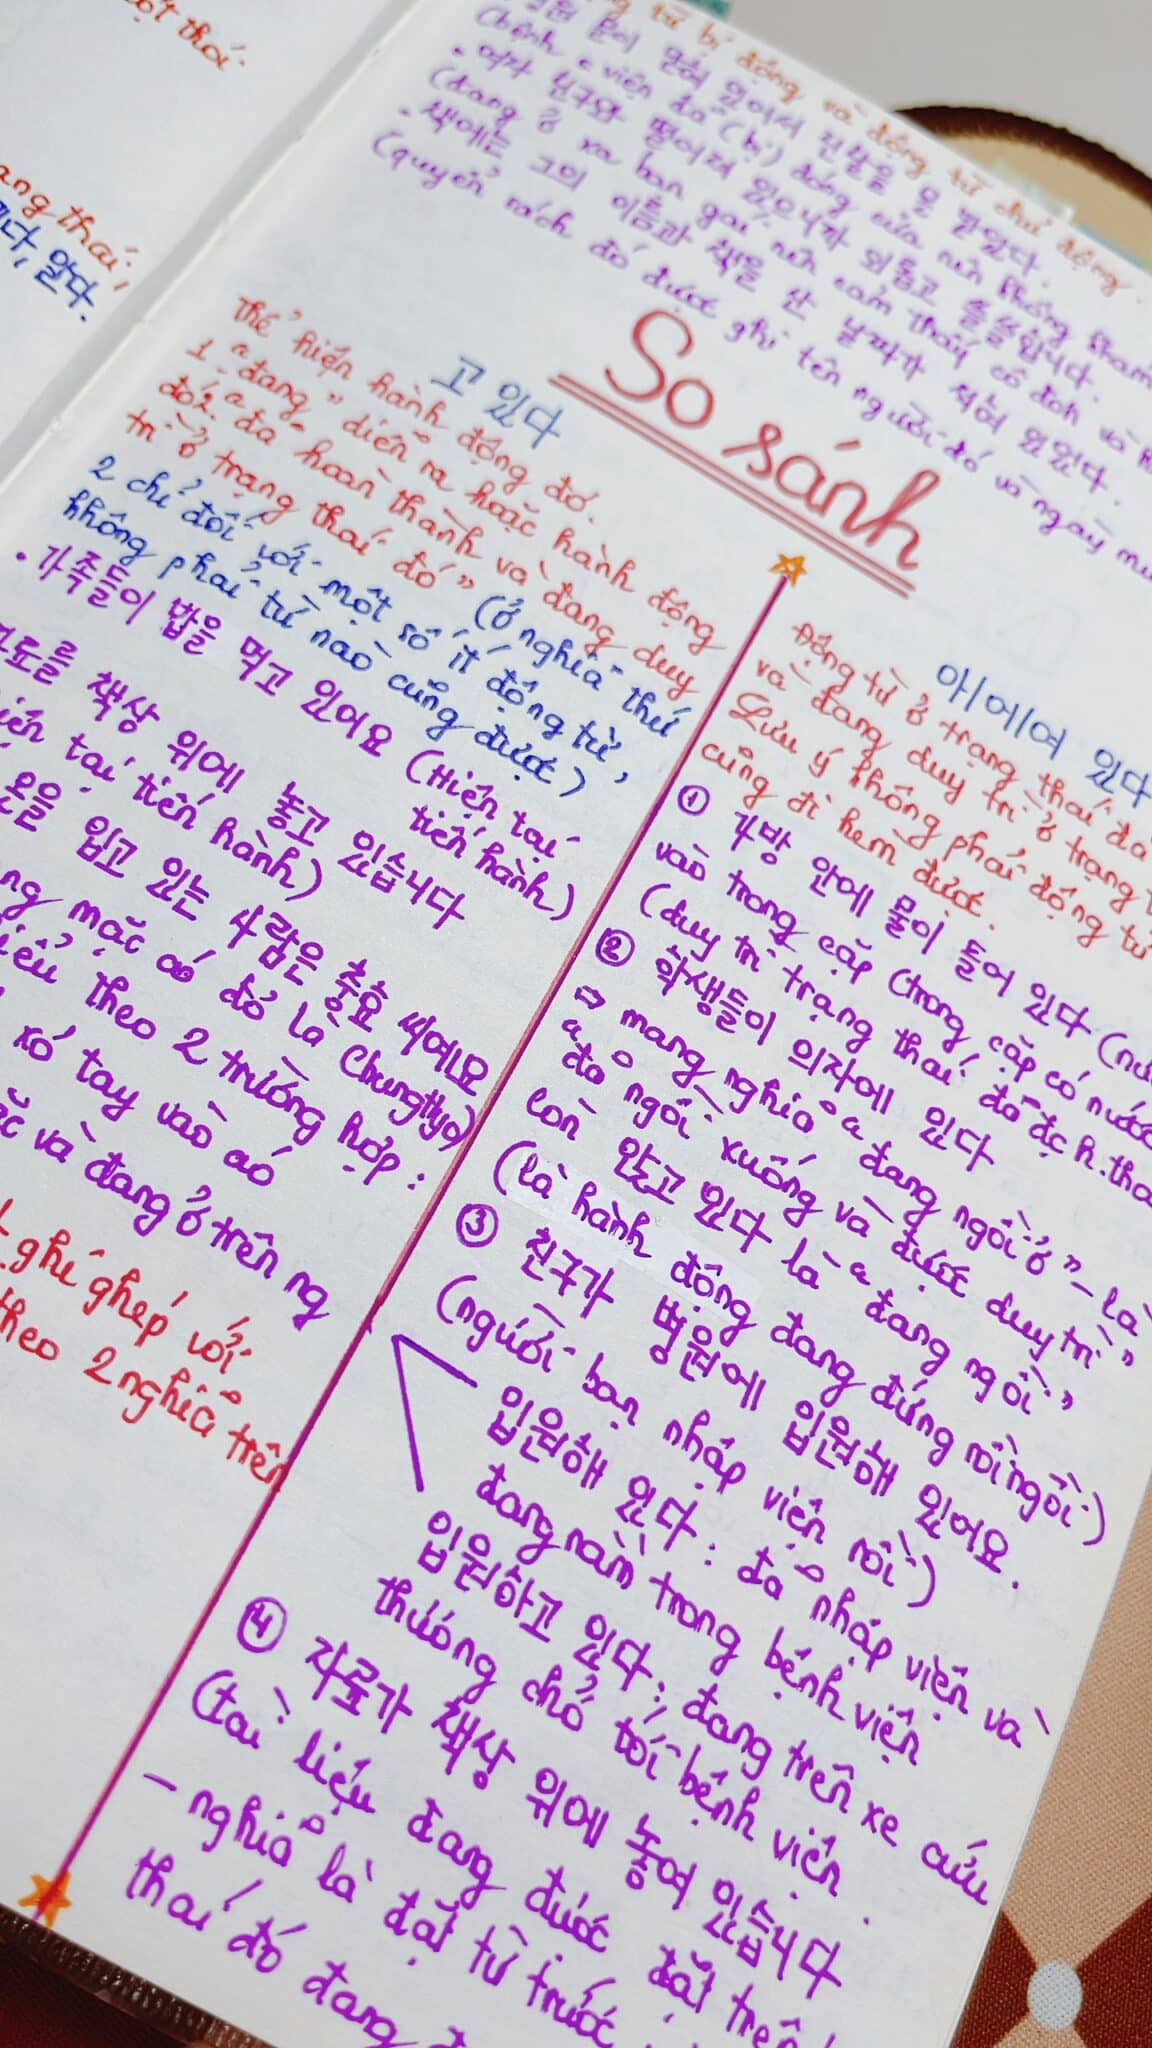 ột thái.
ang thái,
알다.
động từ bị động và động từ chủ động.
문이 닫혀 있어서
(bệnh viện đã (bị) đóng cửa nên không tham
여자 친구와 떨어져 있으니까 외롭고 쓸쓸합니다.
(đang ở xa bạn gái nên cảm thấy cô đơn và
책에는 그의 이름과 책을 산 날짜가 적혀 있었다.
(quyển sách đó được ghi tên người đó và ngày mu
So sánh
고 있다
thể hiện hành động đó.
1 "đang" diễn ra hoặc hành động
đó 2 "đã hoàn thành và đang duy
trì ở trạng thái đó" (ở nghĩa thứ
2 chỉ đối với một số ít động từ,
không phải từ nào cũng được)
• 가족들이 밥을 먹고 있어요 (Hiện tại
tiến hành)
료를 책상 위에 놓고 있습니다
iện tại tiến hành)
옷을 입고 있는 사람은 충효 씨예요
ng mặc áo đó là Chunghyo)
iểu theo 2 trường hợp:
xỏ tay vào áo
ặc và đang ở trên ng
ghi ghép với
theo 2 nghĩa trên
아/어/여 있다
Động từ ở trạng thái đã
và đang duy trì ở trạng t
Lưu ý không phải động từ
cũng đi kèm được.
① 가방 안에 물이 들어 있다 (nướ
vào trong cặp (trong cặp có nước
(duy trì trạng thái đã đc h.tha
② 학생들이 의자에 있다
⇒ mang nghĩa "đang ngồi ở" – là
"đã ngồi xuống và được duy trì"
còn 앉고 있다 là "đang ngồi"
(là hành động đang đứng rồi ngồi)
③ 친구가 병원에 입원해 있어요.
(người bạn nhập viện rồi)
입원해 있다: đã nhập viện và
đang nằm trong bệnh viện
입원하고 있다: đang trên xe cứu
thương chở tới bệnh viện.
④ 자료가 책상 위에 놓여 있습니다
(tài liệu đang được đặt trên
– nghĩa là đặt từ trước
thái đó đang